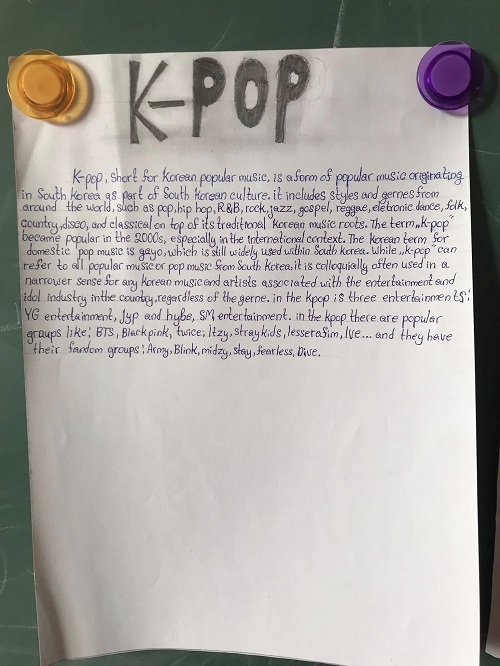 K-POP
K-pop, short for Korean popular music, is a form of popular music originating
in South Korea as part of South Korean culture. it includes styles and gernes from
around the world, such as pop, hip hop, R&B, rock, jazz, gospel, reggae, eletronic dance, folk,
country, disco, and classical on top of its traditional Korean music roots. The term „k-pop"
became popular in the 2000s, especially in the international context. The Korean term for
domestic pop music is gayo, which is still widely used within South Korea. While „k-pop" can
refer to all popular music or pop music from South Korea, it is colloquially often used in a
narrower sense for any Korean music and artists associated with the entertainment and
idol industry in the country, regardless of the gerne. in the kpop is three entertainments:
YG entertainment, jyp and hybe, SM entertainment. in the kpop there are popular
groups like: BTS, Blackpink, twice, Itzy, straykids, lesserafim, Ive... and they have
their fandom groups: Army, Blink, midzy, stay, fearless, Dive.